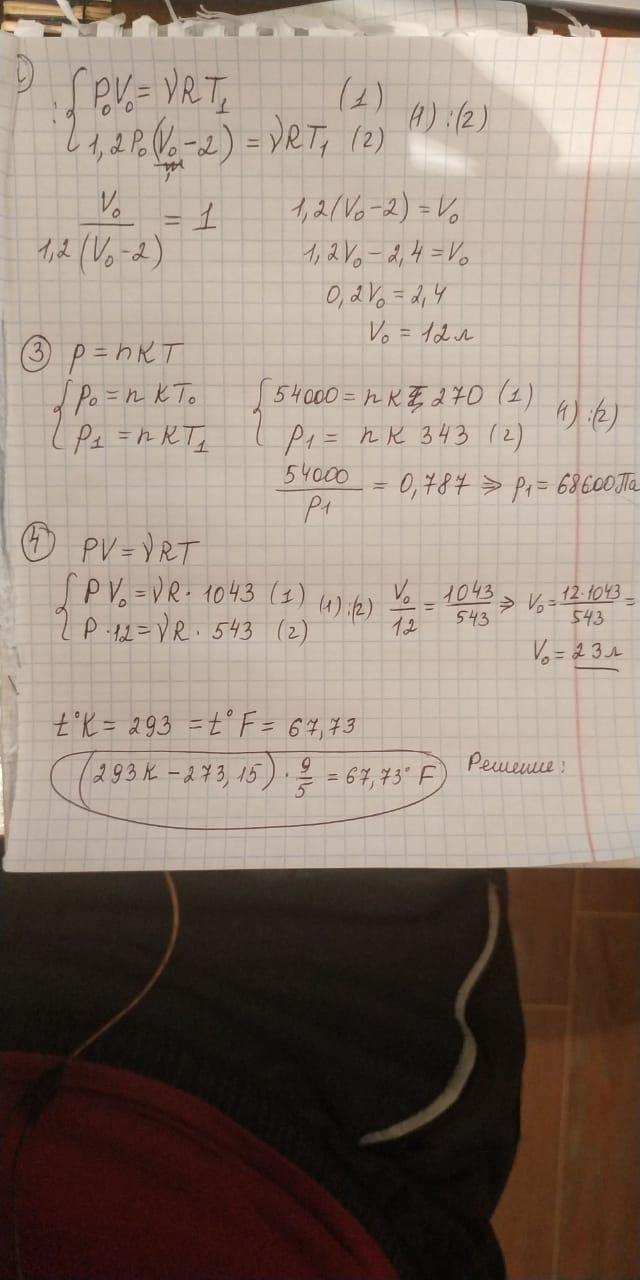 1)
P₀V₀ = νRT₁ (1)
1,2P₀(V₀-2) = νRT₁ (2) (1):(2)
V₀ / 1,2(V₀-2) = 1
1,2(V₀-2) = V₀
1,2V₀ - 2,4 = V₀
0,2V₀ = 2,4
V₀ = 12 л
③ p = nKT
p₀ = nKT₀
p₁ = nKT₁
54000 = nK 270 (1)
p₁ = nK 343 (2) (1):(2)
54000 / p₁ = 0,787 ⇒ p₁ = 68600 Па
④ PV = νRT
PV₀ = νR · 1043 (1)
P · 12 = νR · 543 (2)
(1):(2) V₀/12 = 1043/543 ⇒ V₀ = 12·1043/543 =
V₀ = 23 л
t°K = 293 = t°F = 67,73
(293K - 273,15) · 9/5 = 67,73° F
Решение: